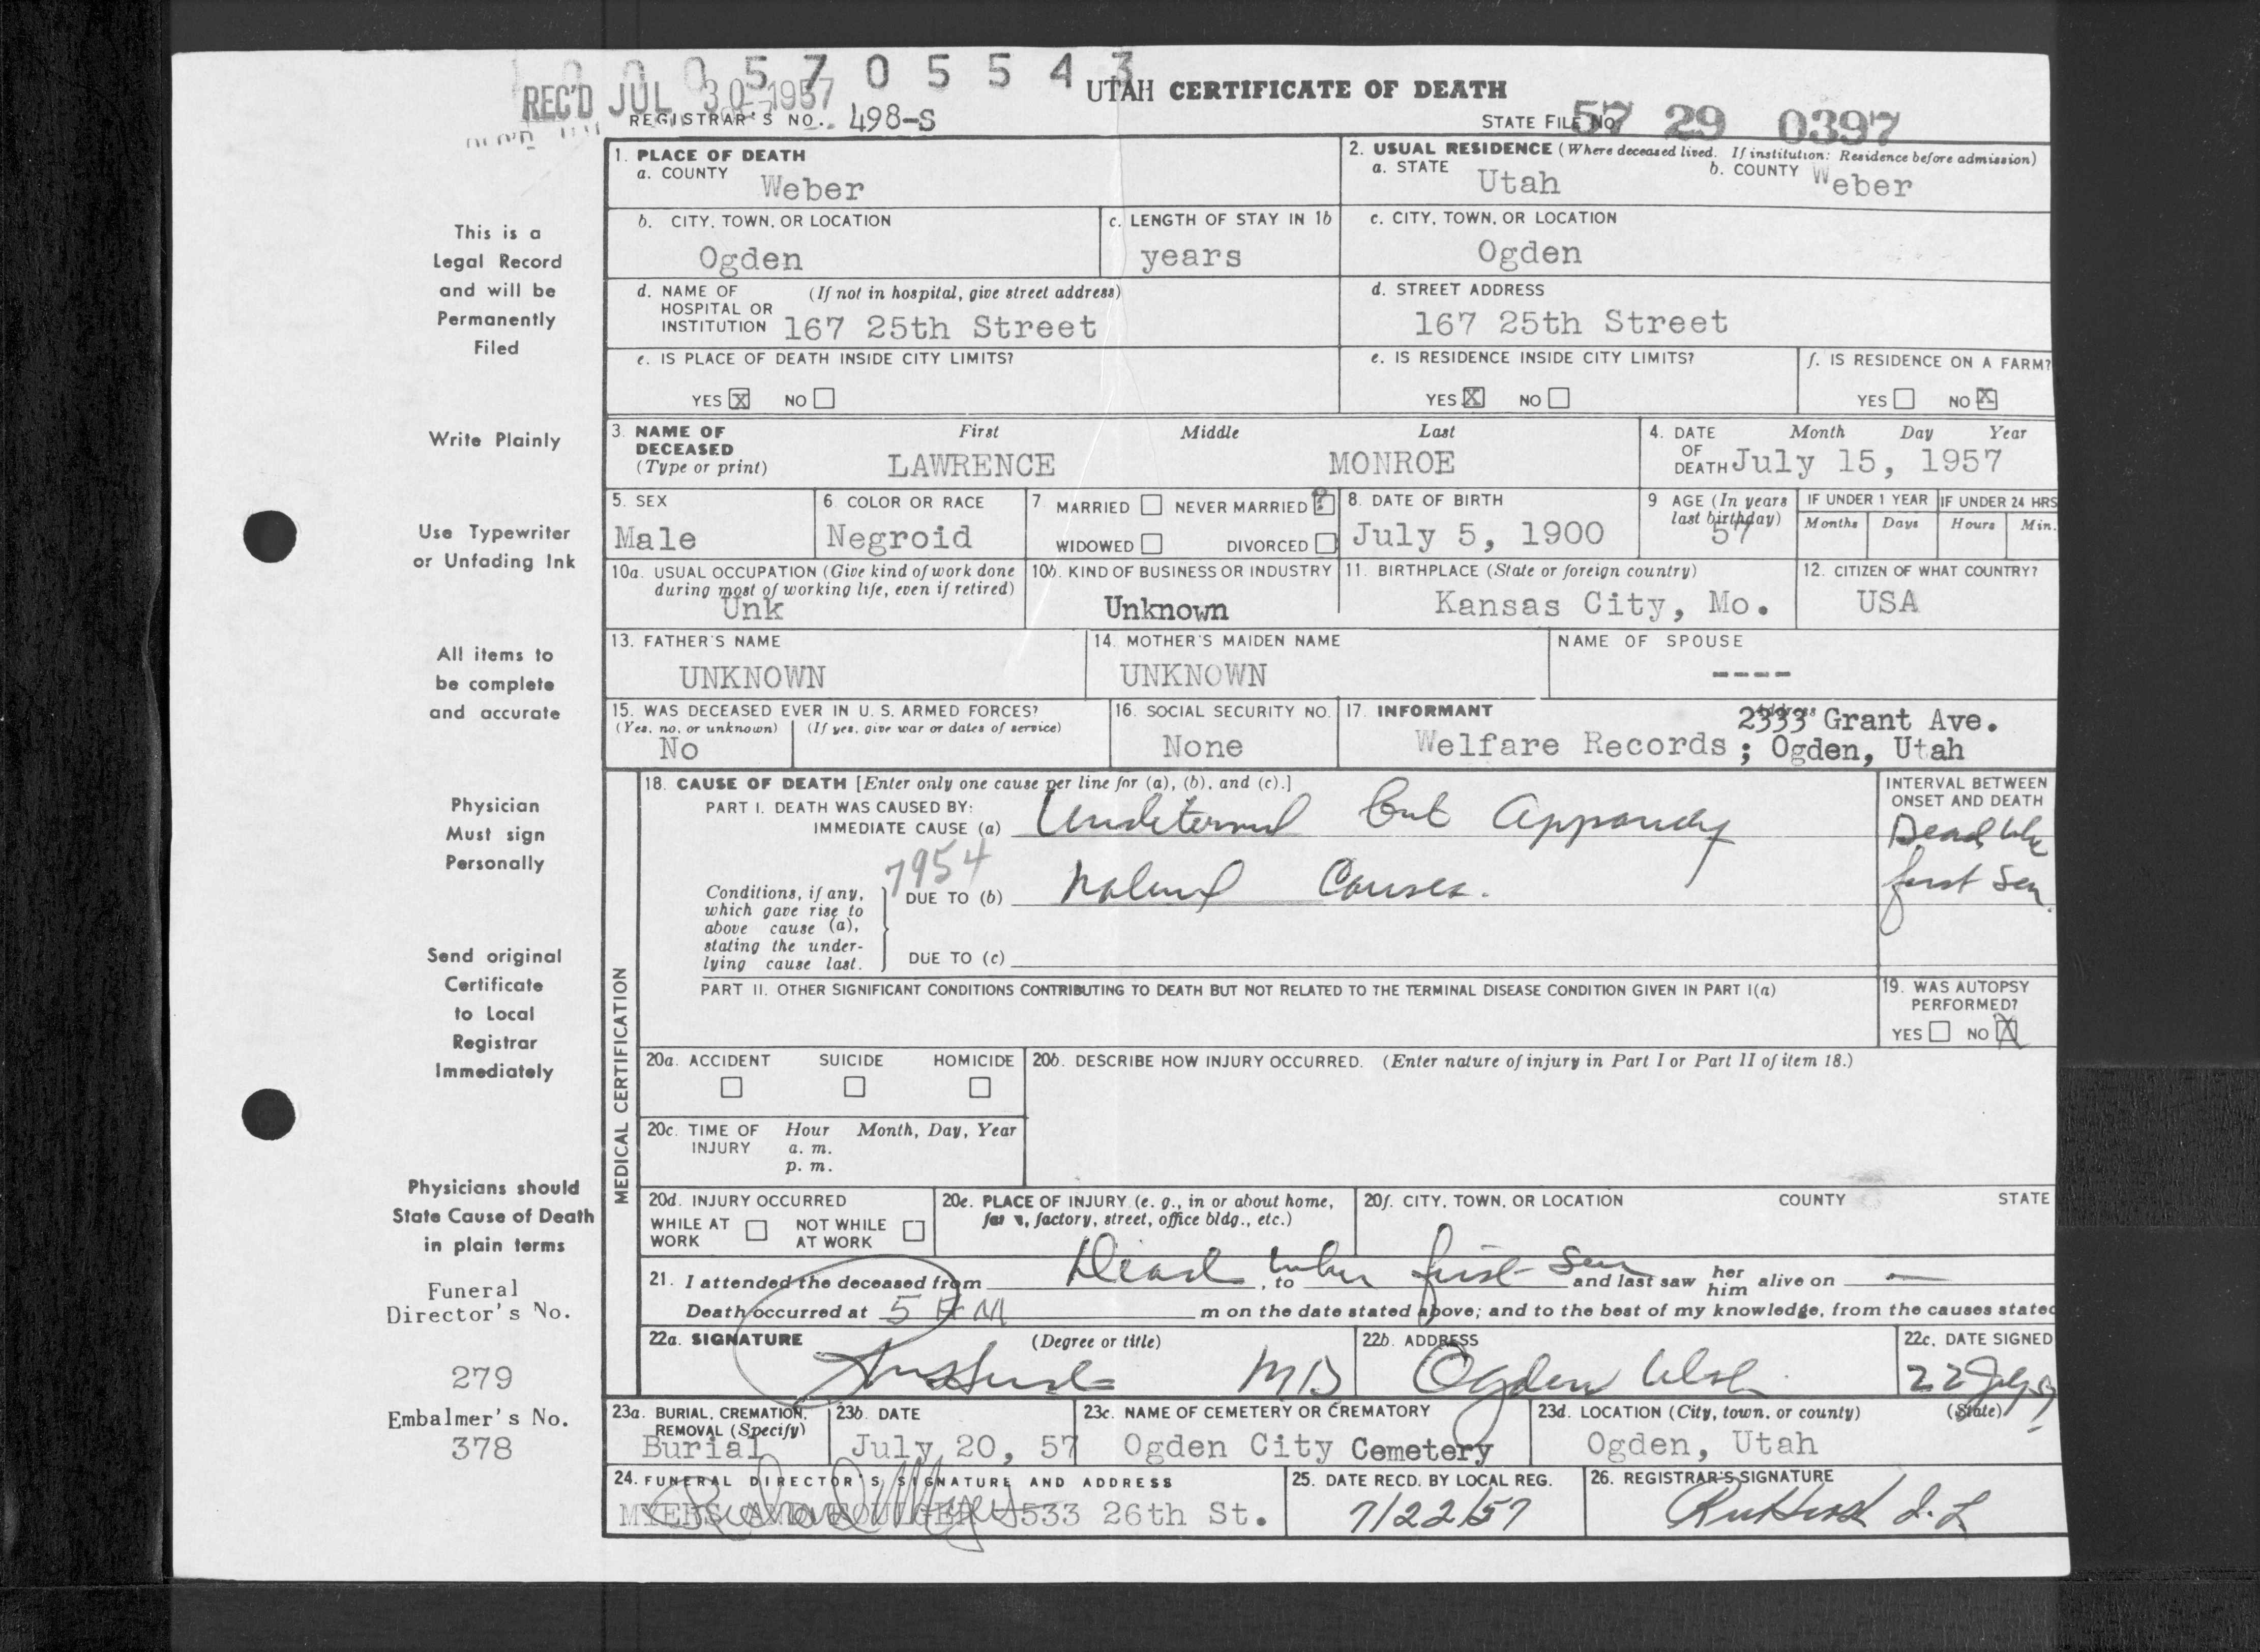 1 0 0 5 7 0 5 5 4 3
REC'D JUL 30 1957
UTAH CERTIFICATE OF DEATH
REGISTRAR'S NO. 498-S
STATE FILE NO. 57 29 0397
1. PLACE OF DEATH
a. COUNTY Weber
2. USUAL RESIDENCE (Where deceased lived. If institution: Residence before admission)
a. STATE Utah b. COUNTY Weber
b. CITY, TOWN, OR LOCATION Ogden
c. LENGTH OF STAY IN 1b years
c. CITY, TOWN, OR LOCATION Ogden
d. NAME OF HOSPITAL OR INSTITUTION (If not in hospital, give street address) 167 25th Street
d. STREET ADDRESS 167 25th Street
e. IS PLACE OF DEATH INSIDE CITY LIMITS?
YES X NO
e. IS RESIDENCE INSIDE CITY LIMITS?
YES X NO
f. IS RESIDENCE ON A FARM?
YES NO X
3. NAME OF DECEASED (Type or print)
First Middle Last
LAWRENCE MONROE
4. DATE OF DEATH Month Day Year
July 15, 1957
5. SEX Male
6. COLOR OR RACE Negroid
7. MARRIED NEVER MARRIED ?
WIDOWED DIVORCED
8. DATE OF BIRTH July 5, 1900
9 AGE (In years last birthday) 57
IF UNDER 1 YEAR Months Days
IF UNDER 24 HRS Hours Min.
10a. USUAL OCCUPATION (Give kind of work done during most of working life, even if retired)
Unk
10b. KIND OF BUSINESS OR INDUSTRY
Unknown
11. BIRTHPLACE (State or foreign country)
Kansas City, Mo.
12. CITIZEN OF WHAT COUNTRY?
USA
13. FATHER'S NAME
UNKNOWN
14. MOTHER'S MAIDEN NAME
UNKNOWN
NAME OF SPOUSE
----
15. WAS DECEASED EVER IN U. S. ARMED FORCES?
(Yes, no, or unknown) (If yes, give war or dates of service)
No
16. SOCIAL SECURITY NO.
None
17. INFORMANT Address
2333 Grant Ave.
Welfare Records ; Ogden, Utah
MEDICAL CERTIFICATION
18. CAUSE OF DEATH [Enter only one cause per line for (a), (b), and (c).]
PART I. DEATH WAS CAUSED BY:
IMMEDIATE CAUSE (a) but
7954
Conditions, if any, which gave rise to above cause (a), stating the underlying cause last.
DUE TO (b) Causes.
DUE TO (c)
INTERVAL BETWEEN ONSET AND DEATH
Dead
first
PART II. OTHER SIGNIFICANT CONDITIONS CONTRIBUTING TO DEATH BUT NOT RELATED TO THE TERMINAL DISEASE CONDITION GIVEN IN PART I(a)
19. WAS AUTOPSY PERFORMED?
YES NO X
20a. ACCIDENT SUICIDE HOMICIDE
20b. DESCRIBE HOW INJURY OCCURRED. (Enter nature of injury in Part I or Part II of item 18.)
20c. TIME OF INJURY Hour Month, Day, Year
a. m.
p. m.
20d. INJURY OCCURRED
WHILE AT WORK NOT WHILE AT WORK
20e. PLACE OF INJURY (e. g., in or about home, factory, street, office bldg., etc.)
20f. CITY, TOWN, OR LOCATION COUNTY STATE
21. I attended the deceased from Dead when, to first seen and last saw her him alive on —
Death occurred at 5 PM m on the date stated above; and to the best of my knowledge, from the causes stated
22a. SIGNATURE (Degree or title)
MD
22b. ADDRESS
Ogden Utah
22c. DATE SIGNED
22 July 57
23a. BURIAL, CREMATION, REMOVAL (Specify)
Burial
23b. DATE
July 20, 57
23c. NAME OF CEMETERY OR CREMATORY
Ogden City Cemetery
23d. LOCATION (City, town, or county) (State)
Ogden, Utah
24. FUNERAL DIRECTOR'S SIGNATURE AND ADDRESS
MYERS AND FOULGER 533 26th St.
25. DATE RECD. BY LOCAL REG.
7/22/57
26. REGISTRAR'S SIGNATURE
This is a
Legal Record
and will be
Permanently
Filed
Write Plainly
Use Typewriter
or Unfading Ink
All items to
be complete
and accurate
Physician
Must sign
Personally
Send original
Certificate
to Local
Registrar
Immediately
Physicians should
State Cause of Death
in plain terms
Funeral
Director's No.
279
Embalmer's No.
378